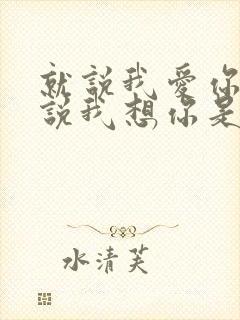 就說我愛你
說我想你是
水清芙